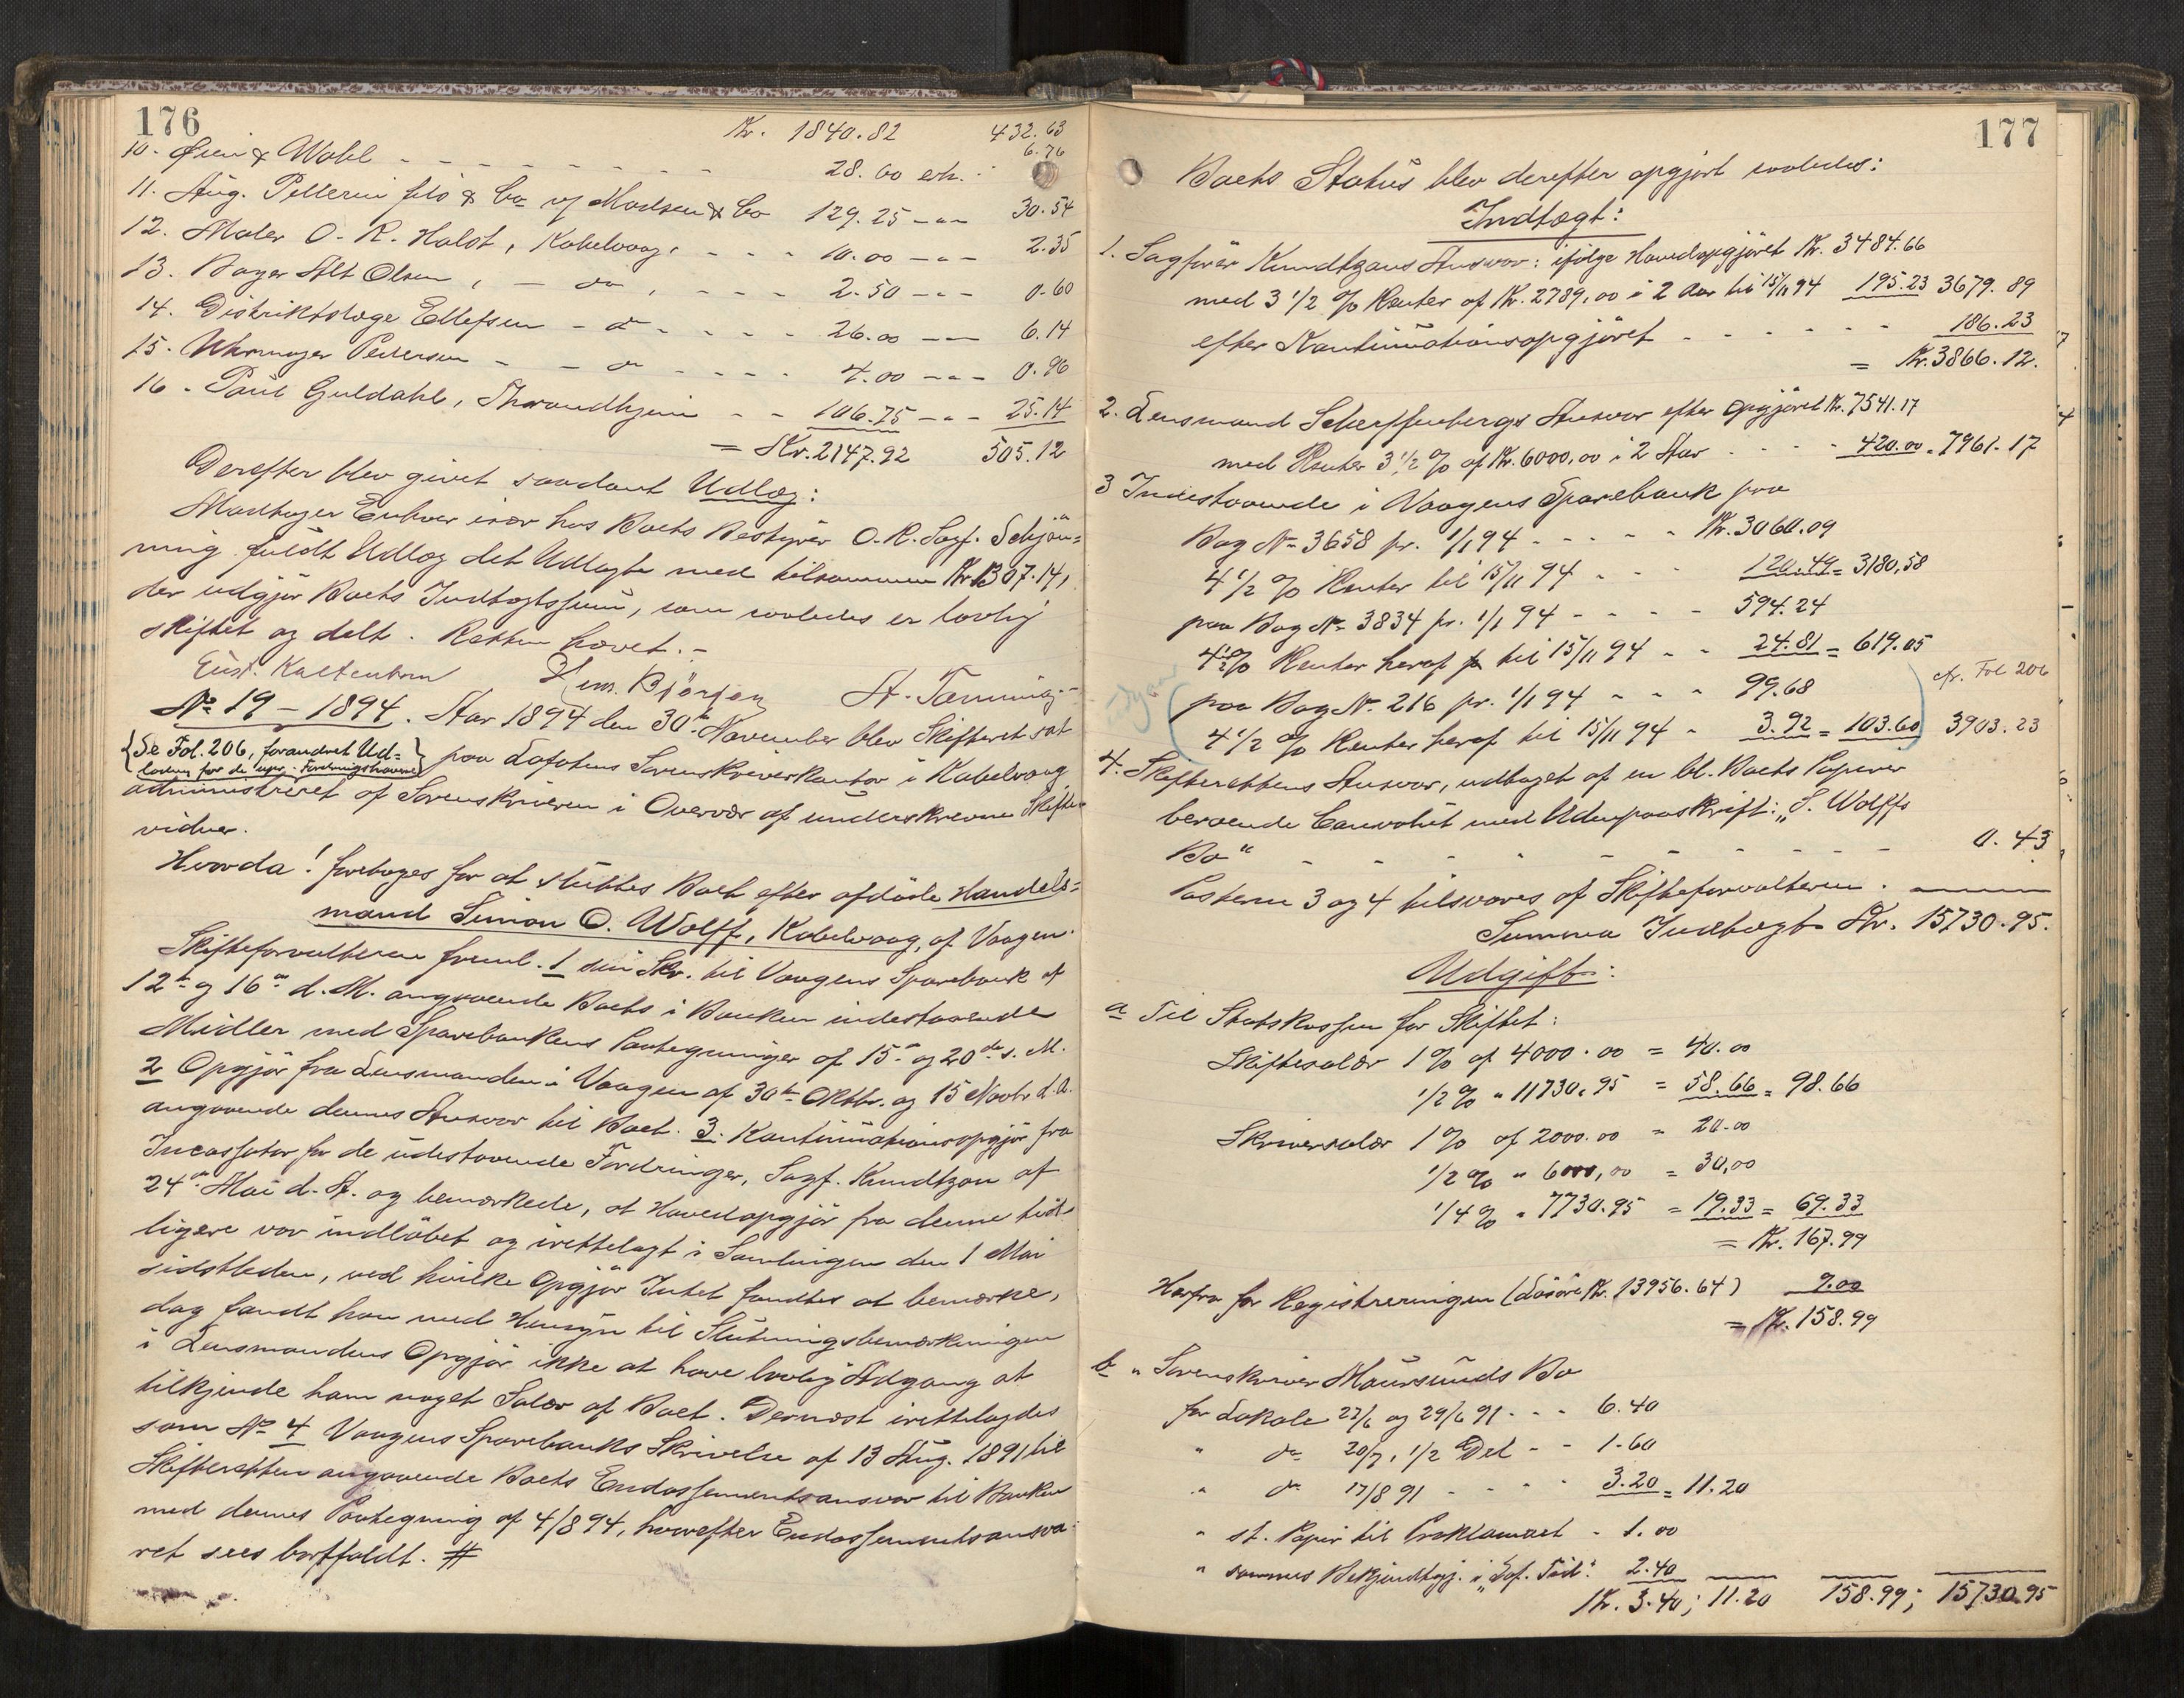 176
Kr. 1840.82 432.63
10. Øien & Wahl - - - - - - - 28.60 erh. - 6.76
11. Aug. Pellerin fils & Co v/ Madsen & Co 129.25 - „ - 30.54
12. Maler O. R. Holst, Kabelvaag, - - - 10.00 - „ - 2.35
13. Bager Alt Olsen, - do, - - - 2.50 - „ - 0.60
14. Distriktslæge Ellefsen - do - - - 26.00 - „ - 6.14
15. Uhrmager Pedersen - - do - - - - 4.00 - „ - 0.96
16. Paul Guldahl, Throndhjem - - 106.75 - „ - 25.14
= Kr. 2147.92 505.12
Derefter blev givet saadant Udlæg:
Modtager Enhver især hos Boets Bestyrer O.R.Sagf. Schjøn=
ning fuldt Udlæg det Udlagte med tilsammen Kr 1307.14,
der udgjør Boets Indtægtssum, som saaledes er lovlig
skiftet og delt. Retten hævet. -
Eust. Kaltenborn Hem. Bjørgan A. Tønning.-
No 19 - 1894. Aar 1894 den 30te November blev Skifteret sat
{Se Fol. 206, forandret Ud=
lodn. for de upr. Fordringshavere}
paa Lofotens Sorenskriverkontor i Kabelvaag
administreret af Sorenskriveren i Overvær af underskrevne Skifte=
vidner.
Hvorda! foretoges for at sluttes Boet efter afdøde Handels=
mand Simon O. Wolff, Kabelvaag, af Vaagen.
Skifteforvalteren freml. 1 sin Skr. til Vaagens Sparebank af
12te og 16de d. M. angaaende Boets i Banken indestaaende
Midler med Sparebankens Paategninger af 15de og 20de s. M.
2 Opgjør fra Lensmanden i Vaagen af 30te Oktbr. og 15 Novbr d. A.
angaaende dennes Ansvar til Boet. 3. Kontinuationsopgjør fra
Incassator for de udestaaende Fordringer, Sagf. Knudtzon af
24de Mai d. A. og bemærkede, at Hovedopgjør fra denne tid=
ligere var indløbet og irettelagt i Samlingen den 1 Mai
sidstleden, ved hvilke Opgjør Intet fandtes at bemærke,
dog fandt han med Hensyn til Slutningsbemærkningen
i Lensmandens Opgjør ikke at have lovlig Adgang at
tilkjende ham noget Salær af Boet. Dernæst irettelagdes
som No 4 Vaagens Sparebanks Skrivelse af 13 Aug. 1891 til
Skifteretten angaaende Boets Endossementsansvar til Banken
med dennes Paategning af 4/8 94, hvorefter Endossementsansva=
ret sees bortfaldt. #
177
Boets Status blev derefter opgjort saaledes:
Indtægt:
1. Sagfører Knudtzons Ansvar: ifølge Hovedopgjøret Kr. 3484.66
med 3 1/2 % Renter af Kr. 2789,00 i 2 Aar til 15/11 94 195.23 3679.89
efter Kontinuationsopgjøret - - - - - - 186.23
= Kr. 3866.12.
2. Lensmand Scherffenbergs Ansvar efter Opgjøret Kr. 7541.17
med Renter 3 1/2 % af Kr. 6000,00 i 2 Aar - - - 420.00 = 7961.17
3 Indestaaende i Vaagens Sparebank paa
Bog No 3658 pr. 1/1 94 - - - - - Kr. 3060.09
4 1/2 % Renter til 15/11 94 - - - 120.49 = 3180,58
paa Bog No 3834 pr. 1/1 94 - - - - 594.24
4 1/2 % Renter heraf til 15/11 94 - - 24.81 = 619.05
paa Bog No. 216 pr. 1/1 94 - - - 99.68 cfr. Fol 206
4 1/2 % Renter heraf til 15/11 94 - 3.92 = 103.60 3903.23
4. Skifterettens Ansvar, udtaget af en bl. Boets Papirer
beroende Convolut med Udenpaaskrift: „S. Wolffs
Bo“ - - - - - - - - - - 0.43
Posterne 3 og 4 tilsvares af Skifteforvalteren.
Summa Indtægt Kr. 15730.95.
Udgift:
a Til Statskassen for Skiftet:
Skiftesalær 1 % af 4000.00 = 40.00
1/2 % „ 11730.95 = 58.66 = 98.66
Skriversalær 1 % af 2000.00 = 20.00
1/2 % „ 6000,00 = 30,00
1/4 % „ 7730.95 = 19.33 = 69.33
= Kr. 167.99
Herfra for Registreringen (Løsøre Kr. 13956.64) 9.00
= Kr. 158.99
b „ Sorenskriver Maursunds Bo
for Lokale 22/6 og 29/6 91 - - - 6.40
„ do 20/7, 1/2 Del - - 1.60
„ do 17/8 91 - - - - 3.20 = 11.20
„ st. Papir til Proklamaet - 1.00
„ sammes Bekjendtgj. i „Lof. Tid.“ 2.40
Kr. 3.40; 11.20 158.99; 15730.95